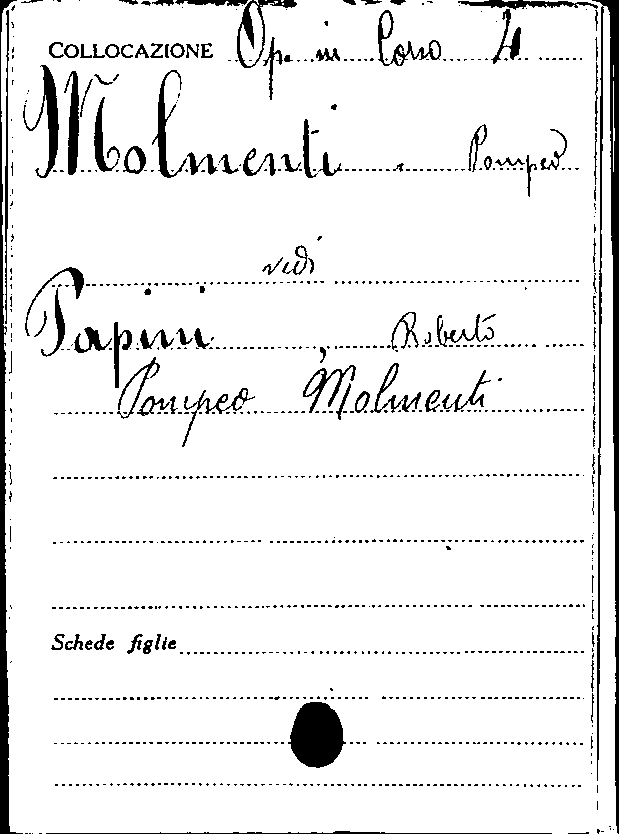 COLLOCAZIONE Op. in Corso 4
Molmenti, Pompeo
vedi
Papini, Roberto
Pompeo Molmenti
Schede figlie